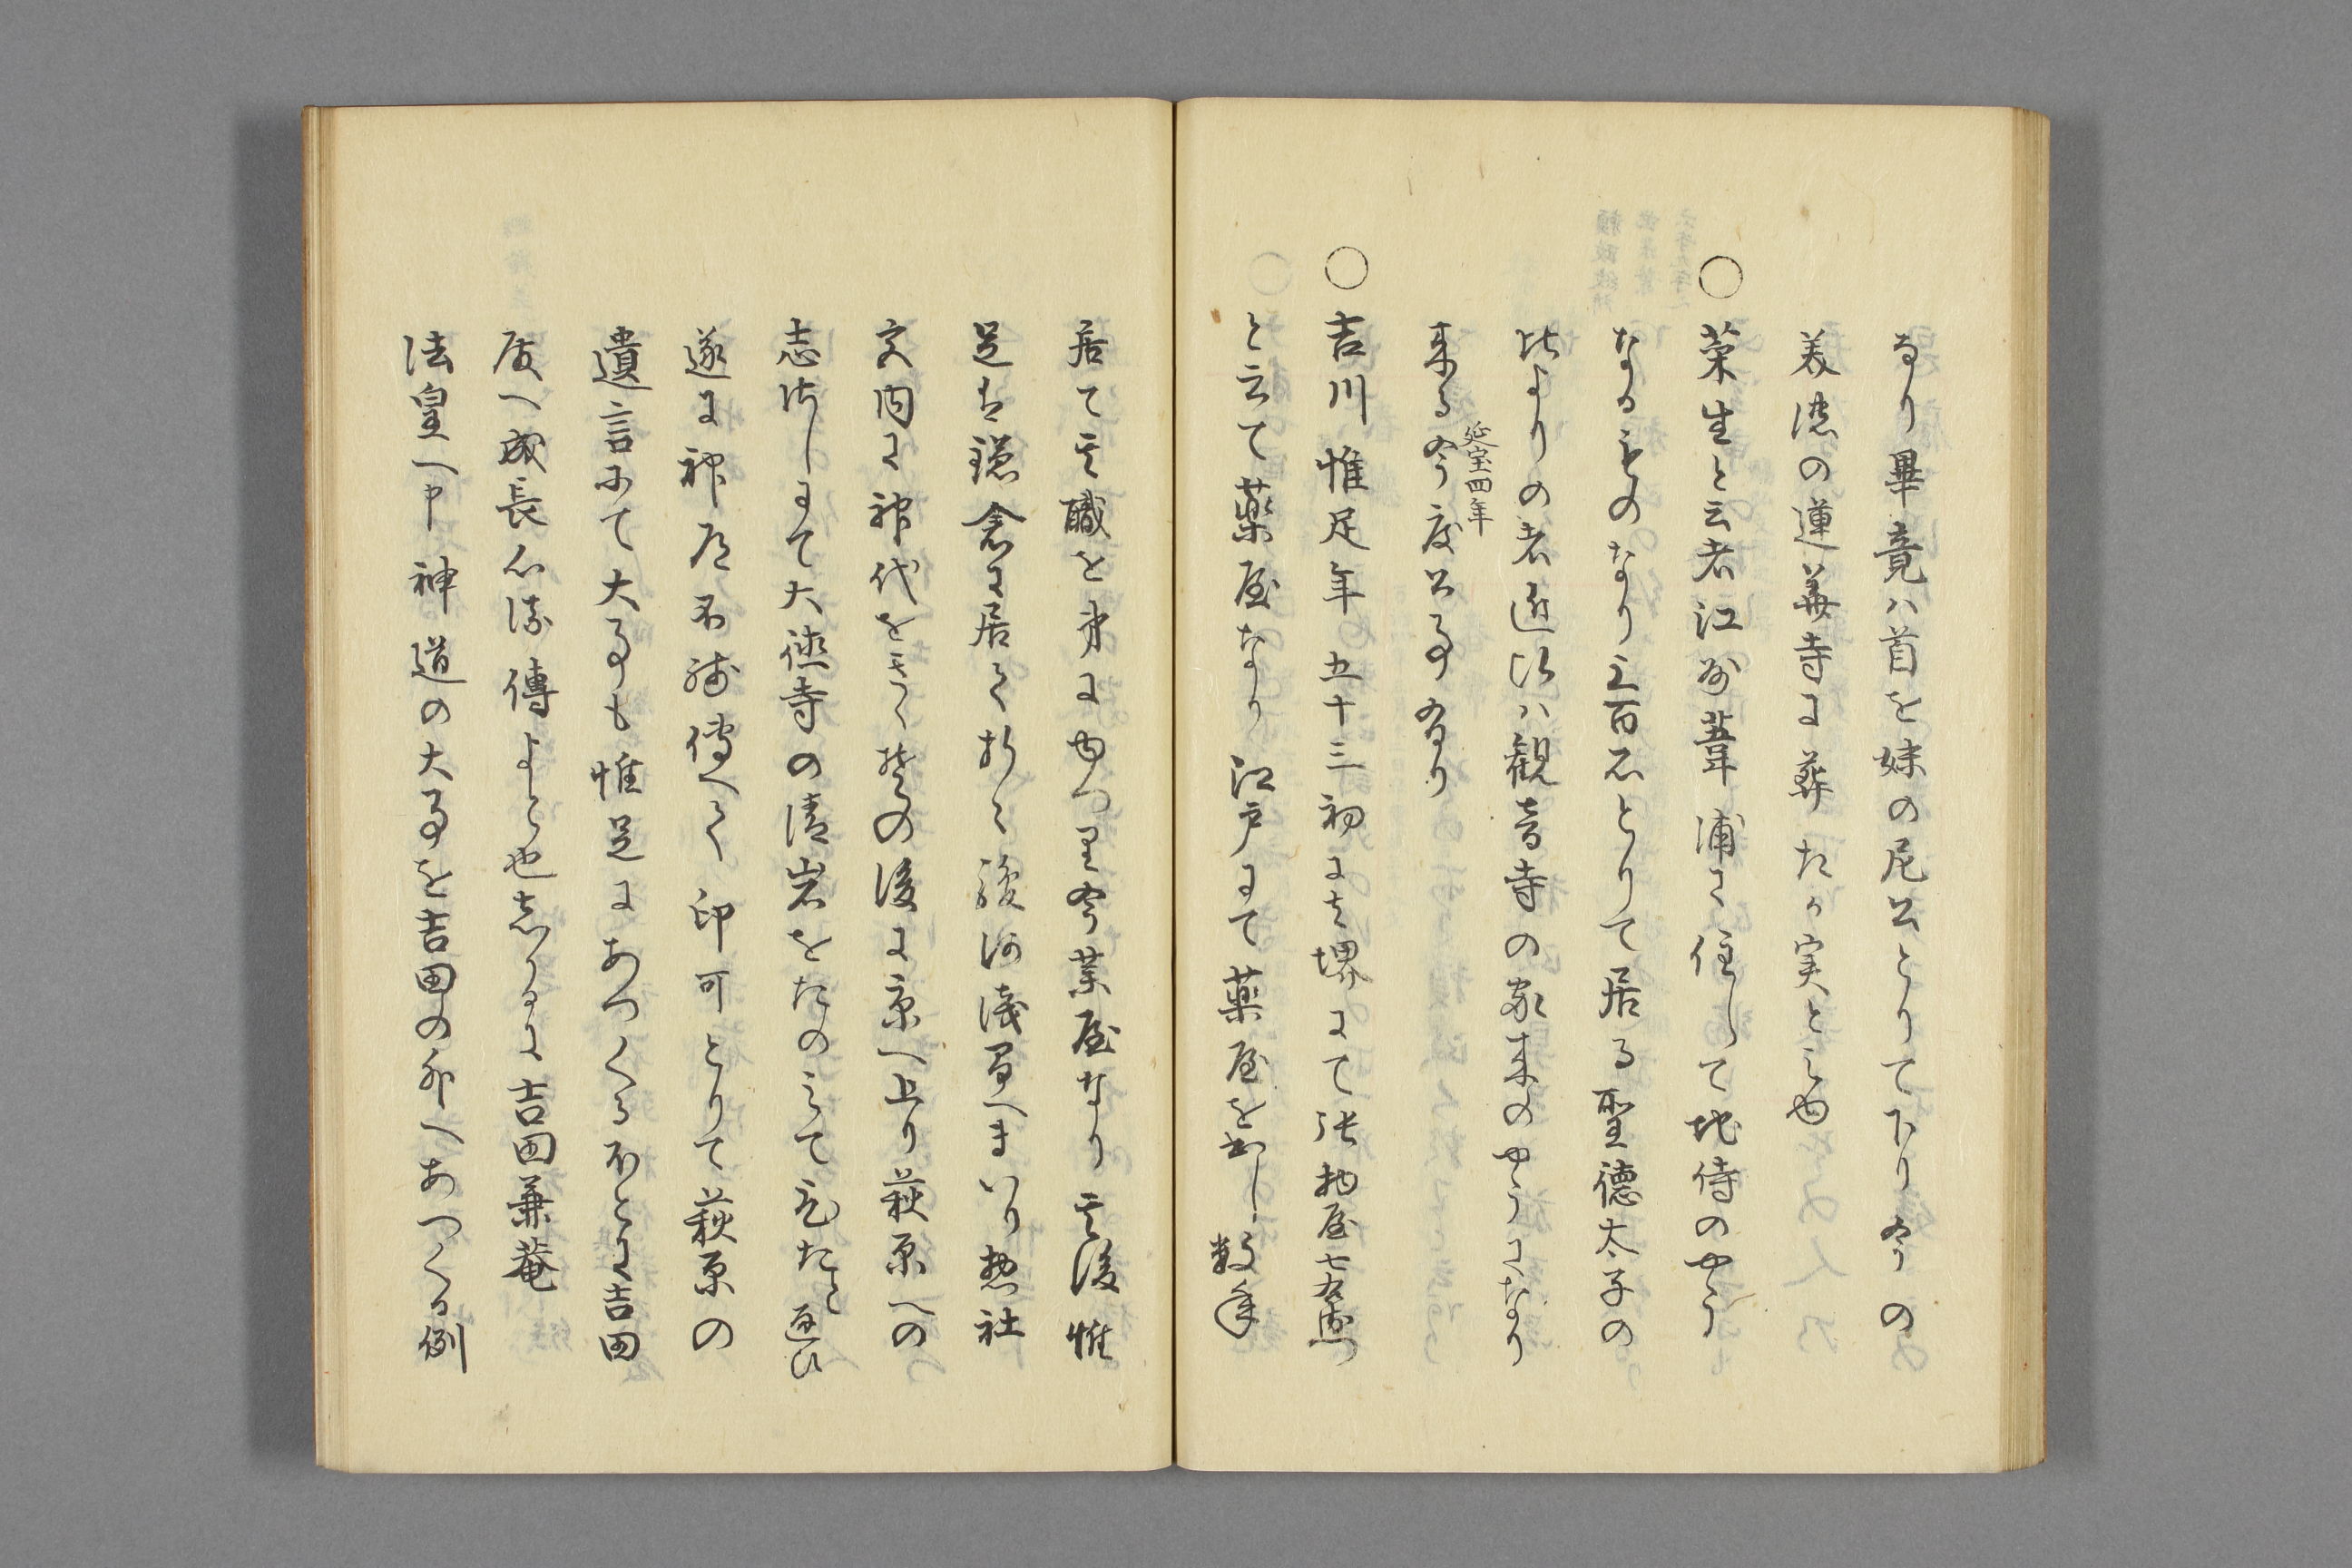 なり畢竟ハ首を妹の尼公とりて下り今の
美濃の蓮華寺に葬たるか実と也
○栄生と云者江州葦浦に住して地侍のやう
なるものなり三百石とりて居る聖徳太子の
時よりの者近江ハ観音寺の家来のやうになり
来る今度公事有り
延宝四年
○吉川惟足年五十三初には堺にて張物屋七右衛門
と云て薬屋なり江戸にて薬屋を出し数年
居て其職を弟にゆつり今薬屋なり其後惟
足は鎌倉に居て折々駿河浅間へまいり惣社
宮内に神代をきく其の後に京へ上り萩原への
志御しにて大徳寺の清岩をたのミて
遂に神道不残傳へて印可とりて萩原の
遺言にて大事も惟足にあつくる程に吉田
へ成長次第傳よと也しかるに吉田兼庵
法皇へ申神道の大事を吉田の外へあつくる例